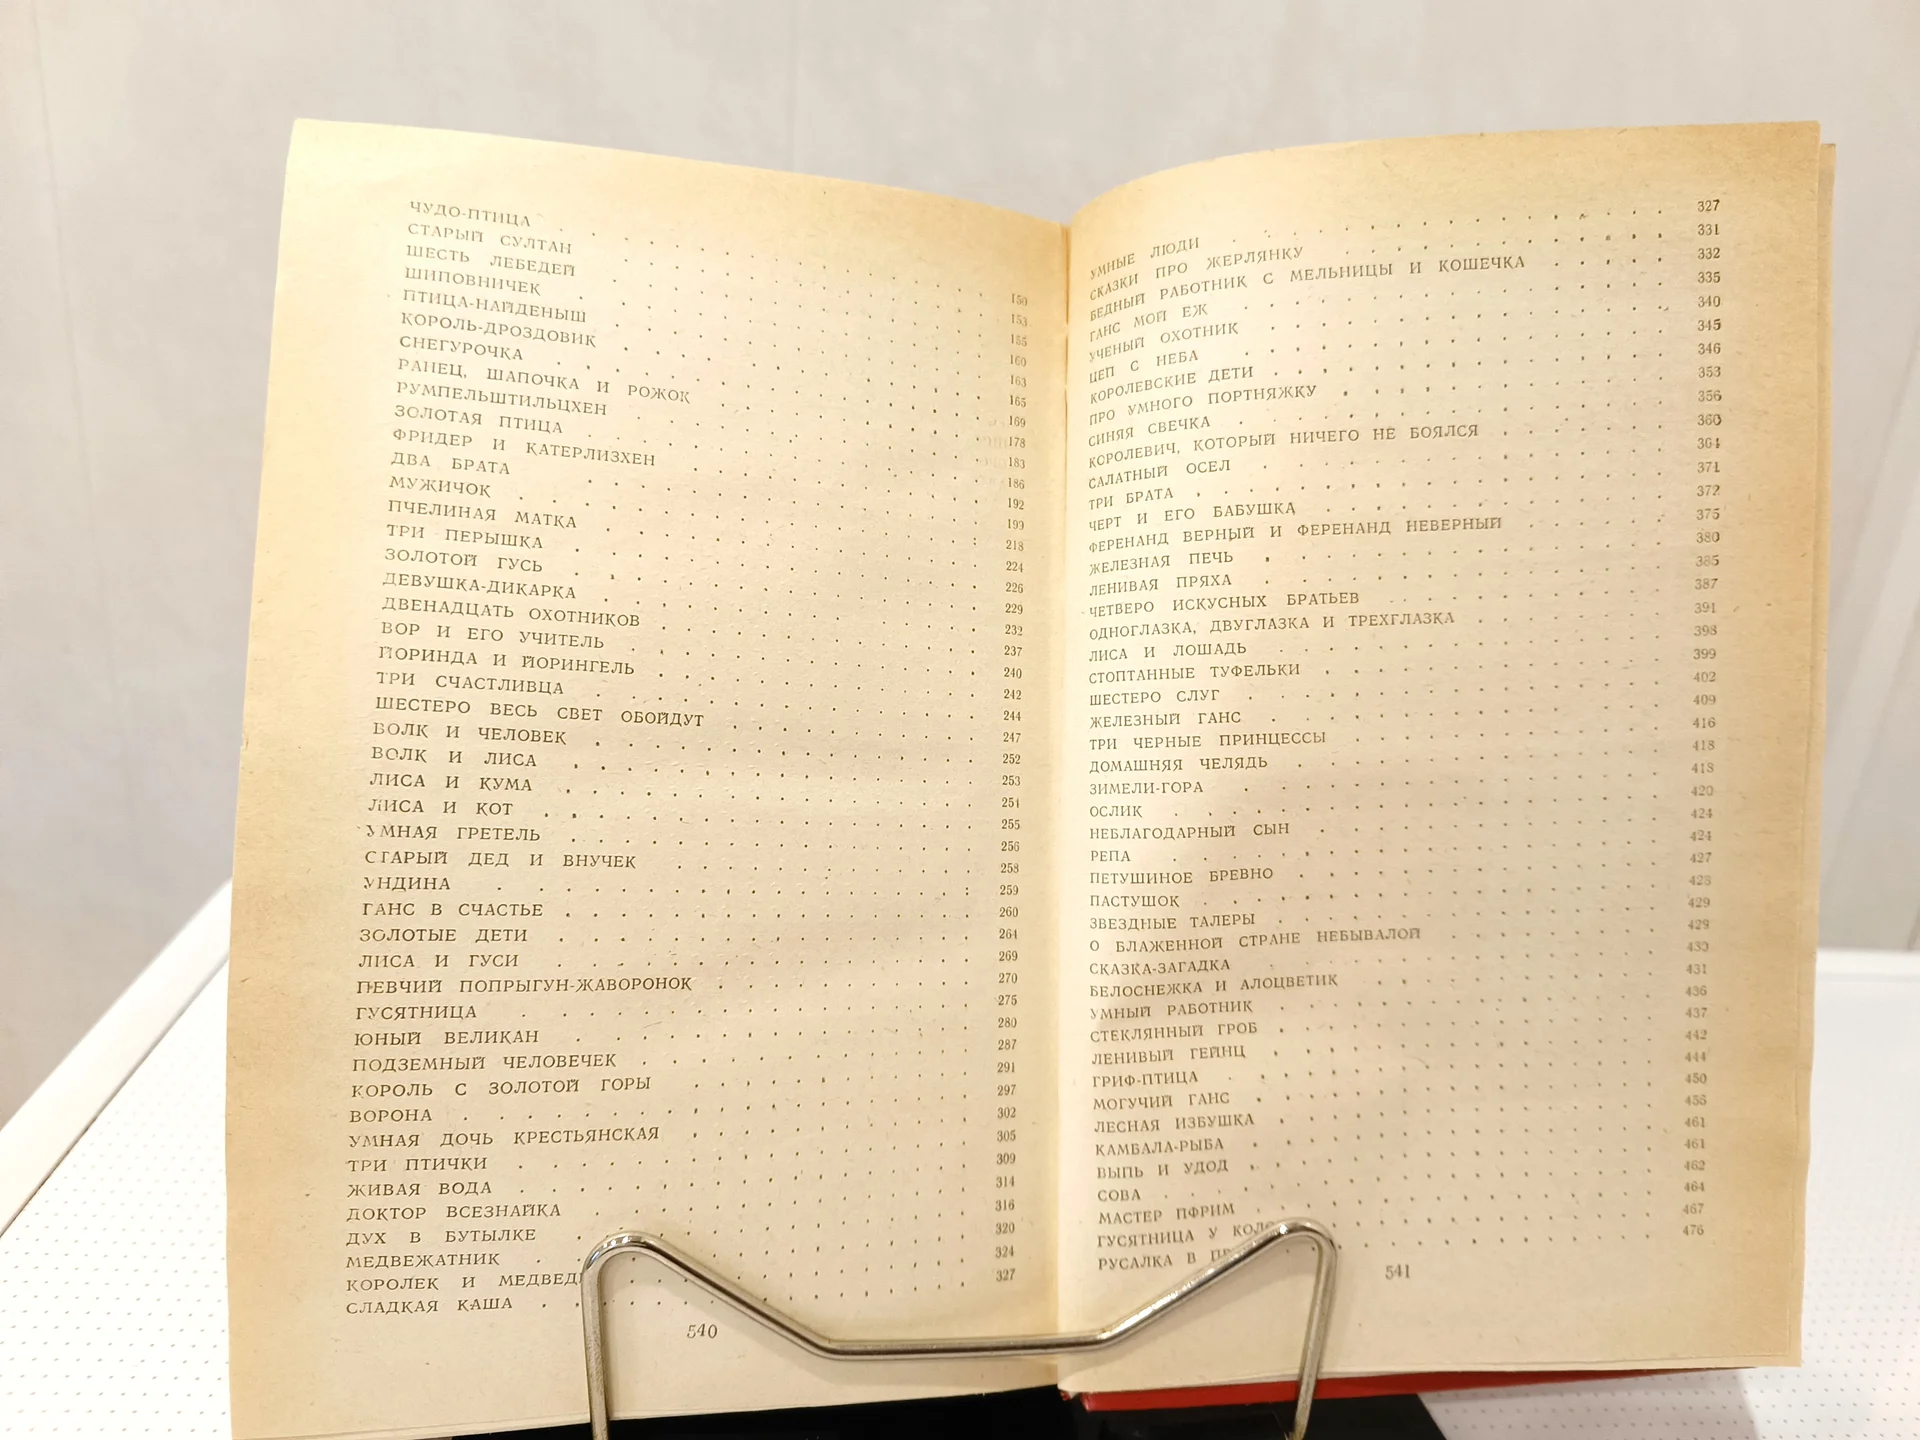 ЧУДО-ПТИЦА 150
СТАРЫЙ СУЛТАН 153
ШЕСТЬ ЛЕБЕДЕЙ 155
ШИПОВНИЧЕК 160
ПТИЦА-НАЙДЕНЫШ 163
КОРОЛЬ-ДРОЗДОВИК 165
СНЕГУРОЧКА 169
РАНЕЦ, ШАПОЧКА И РОЖОК 178
РУМПЕЛЬШТИЛЬЦХЕН 183
ЗОЛОТАЯ ПТИЦА 186
ФРИДЕР И КАТЕРЛИЗХЕН 192
ДВА БРАТА 199
МУЖИЧОК 218
ПЧЕЛИНАЯ МАТКА 224
ТРИ ПЕРЫШКА 226
ЗОЛОТОЙ ГУСЬ 229
ДЕВУШКА-ДИКАРКА 232
ДВЕНАДЦАТЬ ОХОТНИКОВ 237
ВОР И ЕГО УЧИТЕЛЬ 240
ЙОРИНДА И ЙОРИНГЕЛЬ 242
ТРИ СЧАСТЛИВЦА 244
ШЕСТЕРО ВЕСЬ СВЕТ ОБОЙДУТ 247
ВОЛК И ЧЕЛОВЕК 252
ВОЛК И ЛИСА 253
ЛИСА И КУМА 254
ЛИСА И КОТ 255
УМНАЯ ГРЕТЕЛЬ 256
СТАРЫЙ ДЕД И ВНУЧЕК 258
УНДИНА 259
ГАНС В СЧАСТЬЕ 260
ЗОЛОТЫЕ ДЕТИ 264
ЛИСА И ГУСИ 269
ПЕВЧИЙ ПОПРЫГУН-ЖАВОРОНОК 270
ГУСЯТНИЦА 275
ЮНЫЙ ВЕЛИКАН 280
ПОДЗЕМНЫЙ ЧЕЛОВЕЧЕК 287
КОРОЛЬ С ЗОЛОТОЙ ГОРЫ 291
ВОРОНА 297
УМНАЯ ДОЧЬ КРЕСТЬЯНСКАЯ 302
ТРИ ПТИЧКИ 305
ЖИВАЯ ВОДА 309
ДОКТОР ВСЕЗНАЙКА 314
ДУХ В БУТЫЛКЕ 316
МЕДВЕЖАТНИК 320
КОРОЛЕК И 324
СЛАДКАЯ КАША 327
540
УМНЫЕ ЛЮДИ 327
СКАЗКИ ПРО ЖЕРЛЯНКУ 331
БЕДНЫЙ РАБОТНИК С МЕЛЬНИЦЫ И КОШЕЧКА 332
ГАНС МОЙ ЕЖ 335
УЧЕНЫЙ ОХОТНИК 340
ЦЕП С НЕБА 345
КОРОЛЕВСКИЕ ДЕТИ 346
ПРО УМНОГО ПОРТНЯЖКУ 353
СИНЯЯ СВЕЧКА 356
КОРОЛЕВИЧ, КОТОРЫЙ НИЧЕГО НЕ БОЯЛСЯ 360
САЛАТНЫЙ ОСЕЛ 364
ТРИ БРАТА 371
ЧЕРТ И ЕГО БАБУШКА 372
ФЕРЕНАНД ВЕРНЫЙ И ФЕРЕНАНД НЕВЕРНЫЙ 375
ЖЕЛЕЗНАЯ ПЕЧЬ 380
ЛЕНИВАЯ ПРЯХА 385
ЧЕТВЕРО ИСКУСНЫХ БРАТЬЕВ 387
ОДНОГЛАЗКА, ДВУГЛАЗКА И ТРЕХГЛАЗКА 391
ЛИСА И ЛОШАДЬ 398
СТОПТАННЫЕ ТУФЕЛЬКИ 399
ШЕСТЕРО СЛУГ 402
ЖЕЛЕЗНЫЙ ГАНС 409
ТРИ ЧЕРНЫЕ ПРИНЦЕССЫ 416
ДОМАШНЯЯ ЧЕЛЯДЬ 418
ЗИМЕЛИ-ГОРА 418
ОСЛИК 420
НЕБЛАГОДАРНЫЙ СЫН 424
РЕПА 424
ПЕТУШИНОЕ БРЕВНО 427
ПАСТУШОК 428
ЗВЕЗДНЫЕ ТАЛЕРЫ 429
О БЛАЖЕННОЙ СТРАНЕ НЕБЫВАЛОЙ 429
СКАЗКА-ЗАГАДКА 430
БЕЛОСНЕЖКА И АЛОЦВЕТИК 431
УМНЫЙ РАБОТНИК 436
СТЕКЛЯННЫЙ ГРОБ 437
ЛЕНИВЫЙ ГЕЙНЦ 442
ГРИФ-ПТИЦА 444
МОГУЧИЙ ГАНС 450
ЛЕСНАЯ ИЗБУШКА 456
КАМБАЛА-РЫБА 461
ВЫПЬ И УДОД 461
СОВА 462
МАСТЕР ПФРИМ 464
ГУСЯТНИЦА У 467
РУСАЛКА В 476
541